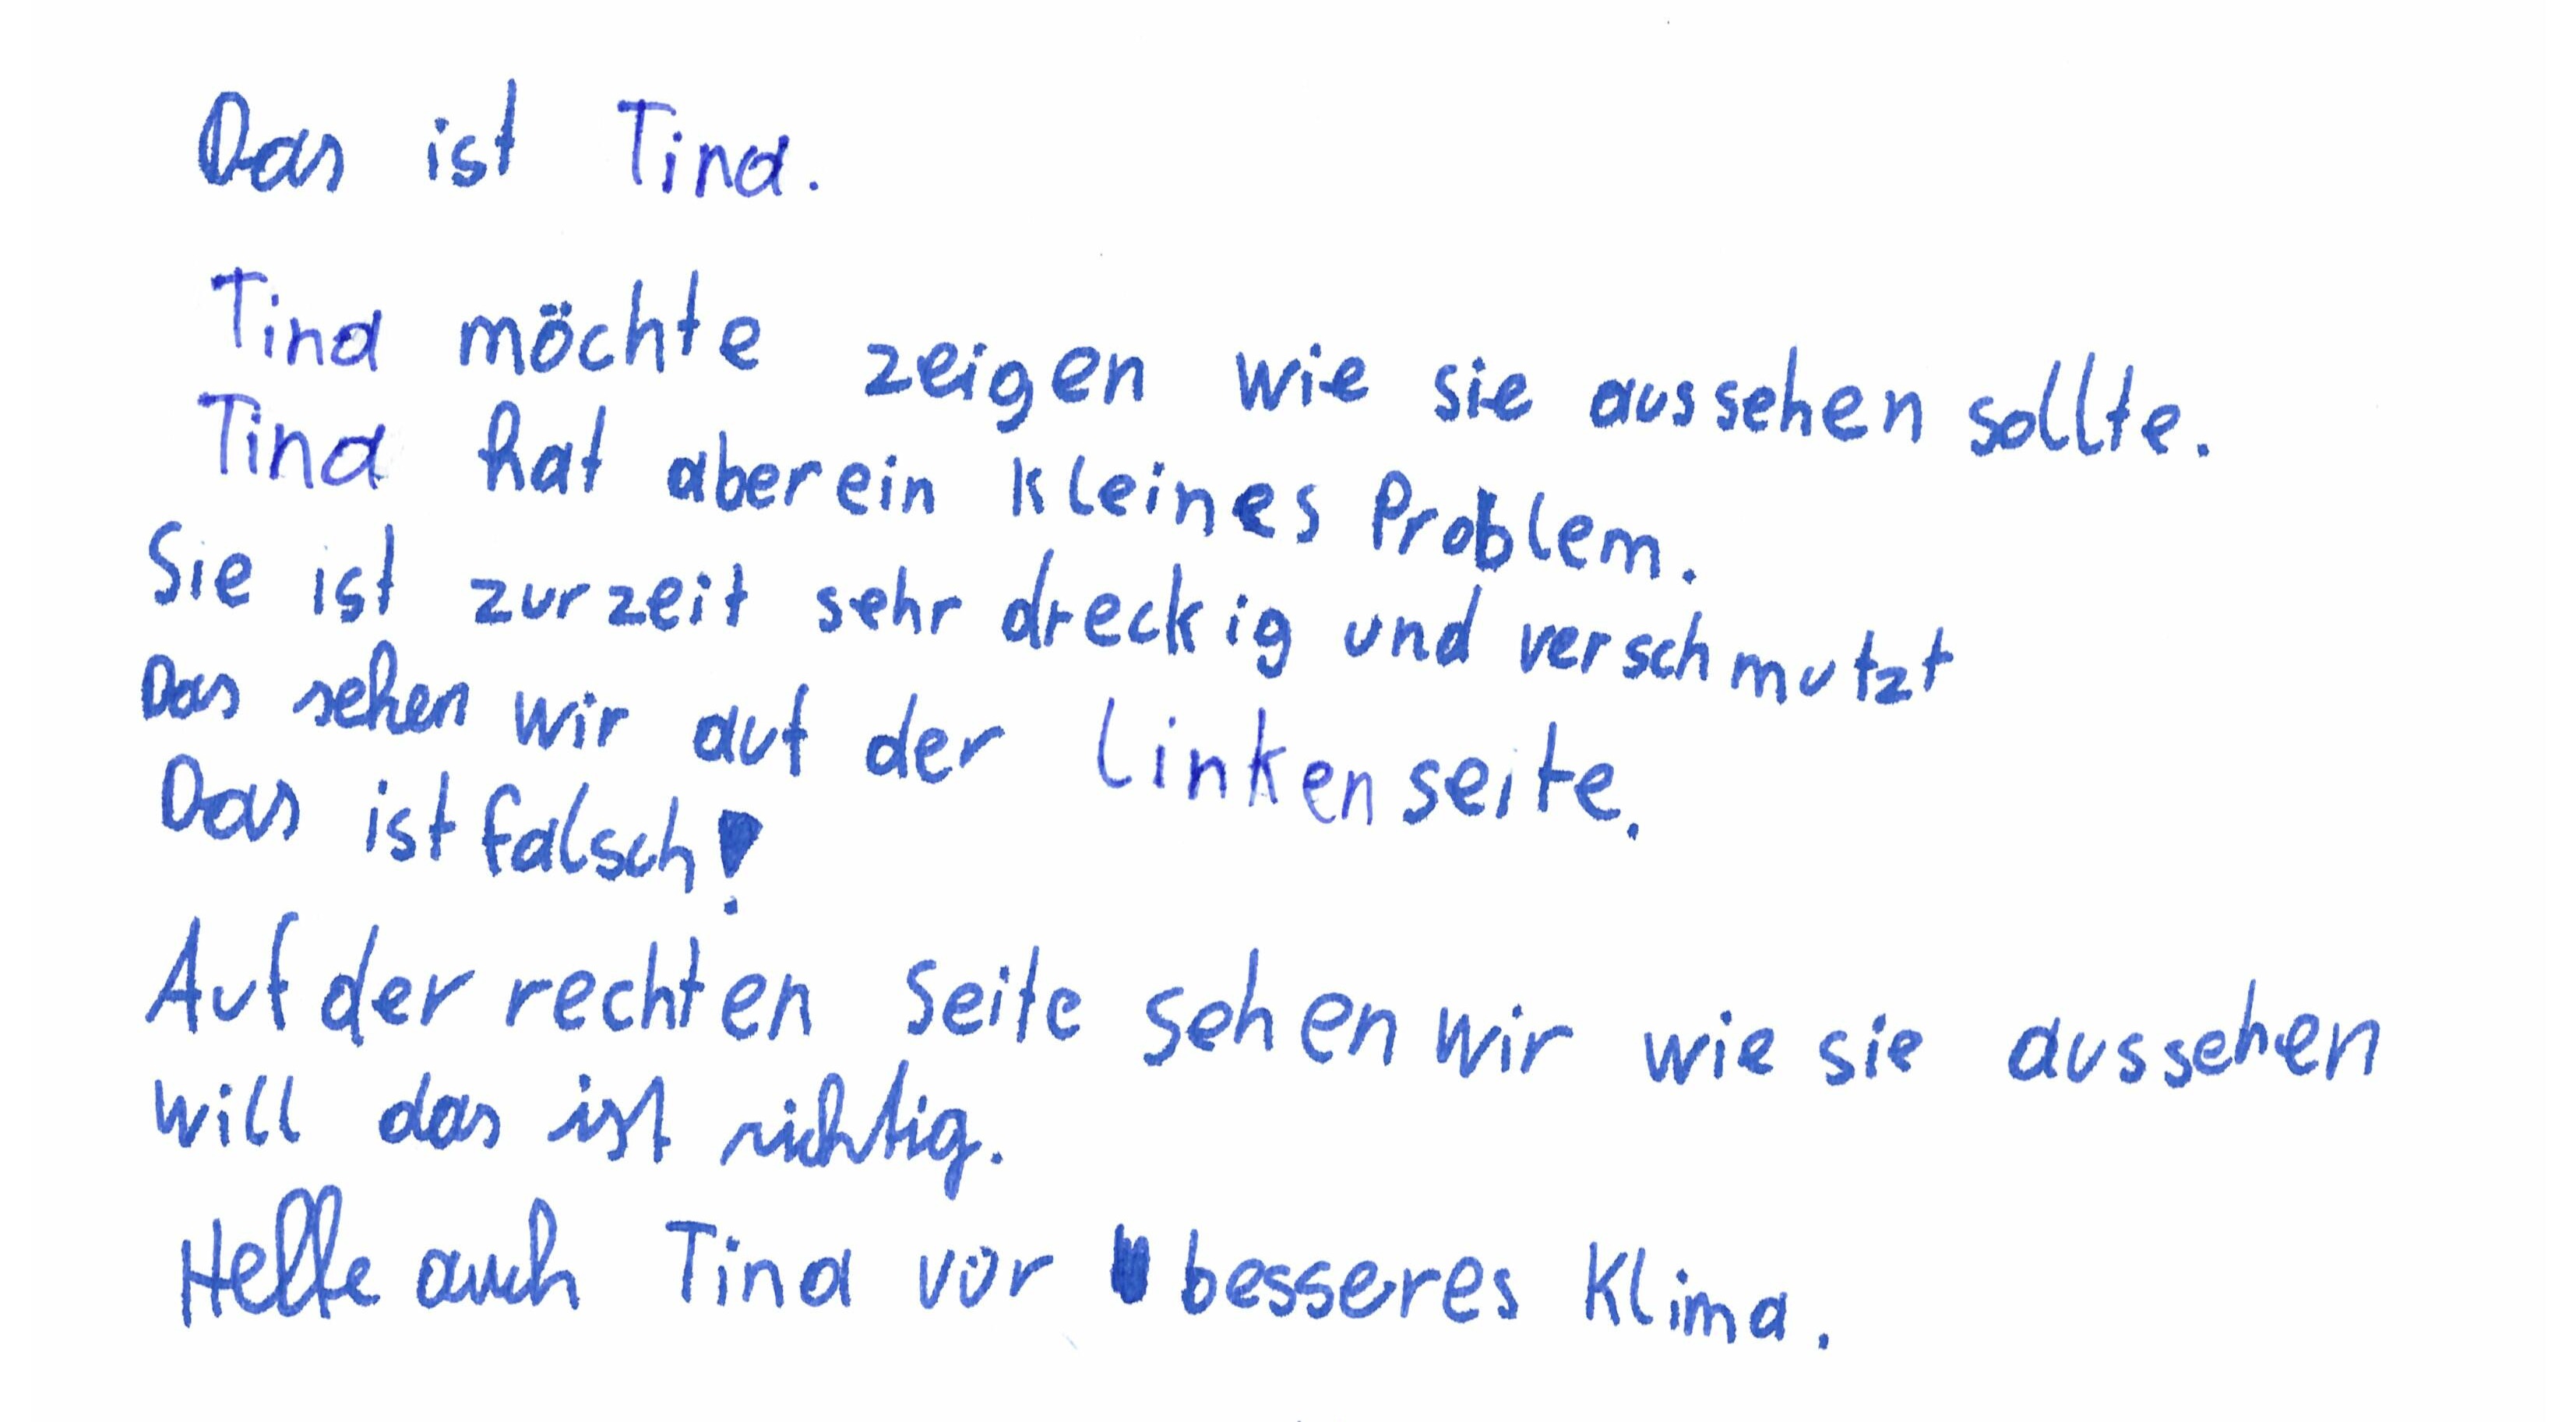 Das ist Tina.
Tina möchte zeigen wie sie aussehen sollte.
Tina hat aber ein kleines Problem.
Sie ist zurzeit sehr dreckig und verschmutzt
Das sehen wir auf der linken seite.
Das ist falsch!
Auf der rechten Seite sehen wir wie sie aussehen
will das ist richtig.
Helfe auch Tina vür besseres Klima.